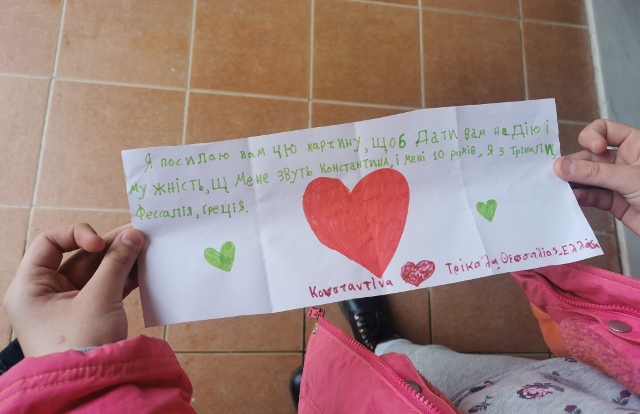 Я посилаю вам цю картину, щоб дати вам надію і
мужність, Щ Мене звуть Константина, і мені 10 років, Я з Трікали,
Фессалія, Греція.
Κονσταντίνα
Τρίκαλα, Θεσσαλίας, Ελλάδα